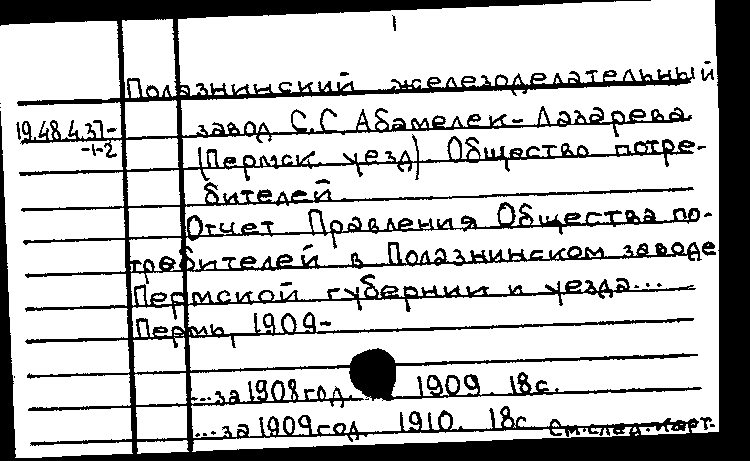 Полазнинский железоделательный
19.48.4.37- завод С.С. Абамелек-Лазарева
-1-2 (Пермск. уезд). Общество потре-
бителей.
Отчет Правления Общества по-
требителей в Полазнинском заводе
Пермской губернии и уезда...
Пермь, 1909-
...за 1908 год. 1909. 18с.
...за 1909 год. 1910. 18с. См. след. карт.